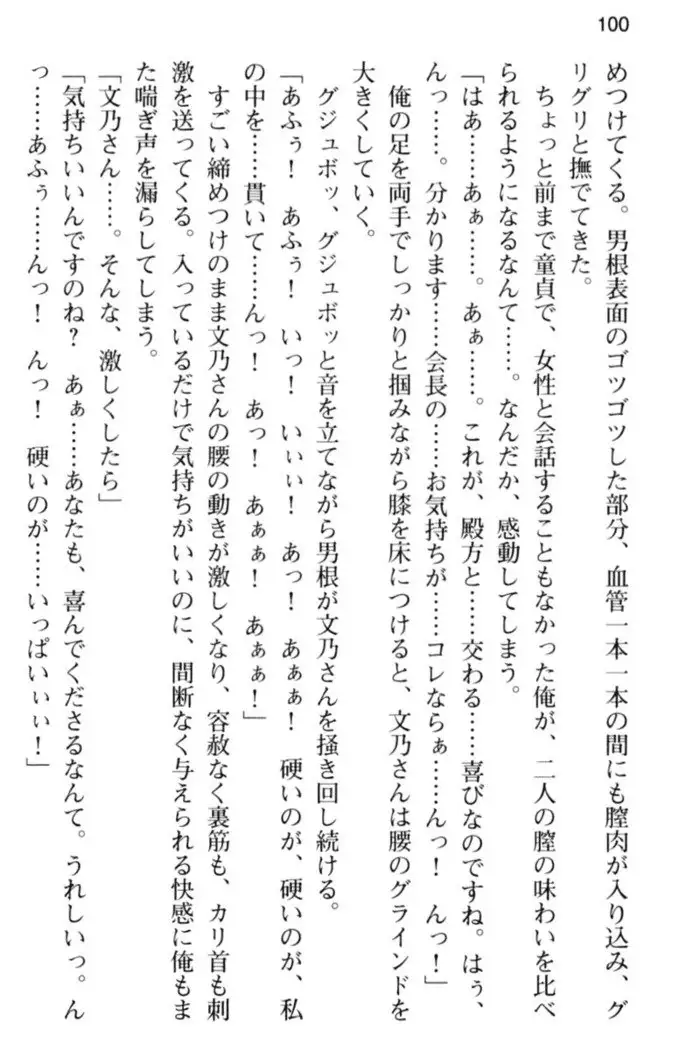 100
めつけてくる。男根表面のゴツゴツした部分、血管一本一本の間にも膣肉が入り込み、グ
リグリと撫でてきた。
ちょっと前まで童貞で、女性と会話することもなかった俺が、二人の膣の味わいを比べ
られるようになるなんて……。なんだか、感動してしまう。
「はあ……あぁ……。あぁ……。これが、殿方と……交わる……喜びなのですね。はぅ、
んっ……。分かります……会長の……お気持ちが……コレならぁ……んっ！　んっ！」
俺の足を両手でしっかりと掴みながら膝を床につけると、文乃さんは腰のグラインドを
大きくしていく。
グジュボッ、グジュボッと音を立てながら男根が文乃さんを掻き回し続ける。
「あふぅ！　あふぅ！　いっ！　いぃぃ！　あっ！　あぁぁ！　硬いのが、硬いのが、私
の中を……貫いて……んっ！　あっ！　あぁぁ！　あぁぁ！」
すごい締めつけのまま文乃さんの腰の動きが激しくなり、容赦なく裏筋も、カリ首も刺
激を送ってくる。入っているだけで気持ちがいいのに、間断なく与えられる快感に俺もま
た喘ぎ声を漏らしてしまう。
「文乃さん……。そんな、激しくしたら」
「気持ちいいんですのね？　あぁ……あなたも、喜んでくださるなんて。うれしいっ。ん
っ……あふぅ……んっ！　んっ！　硬いのが……いっぱいぃぃ！」